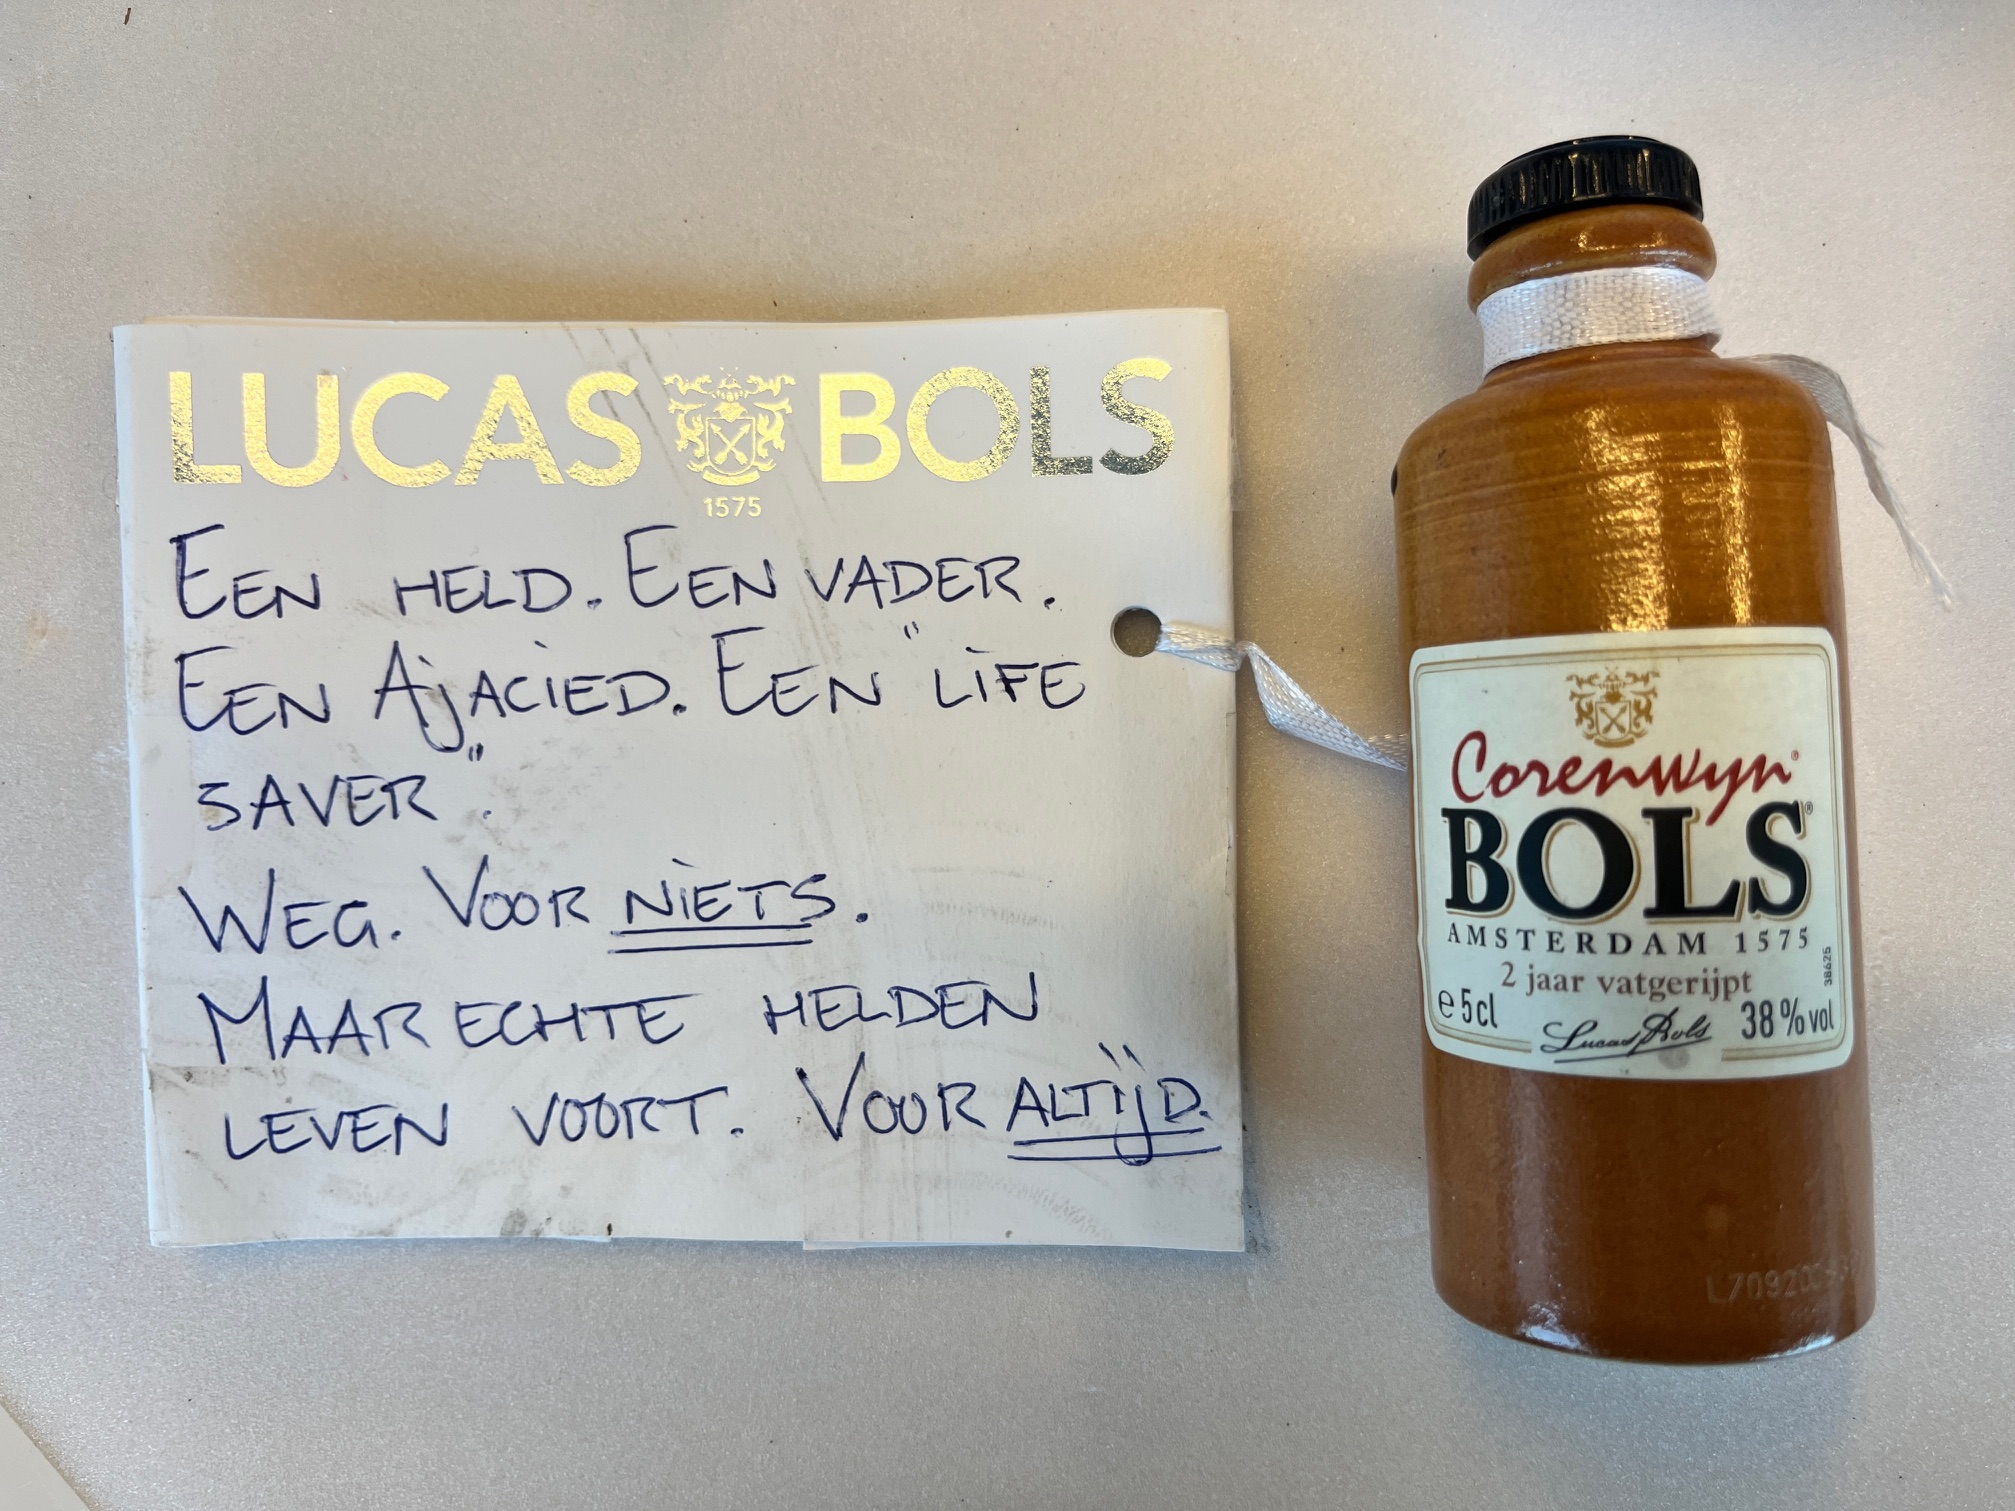 LUCAS BOLS
1575
EEN HELD. EEN VADER.
EEN AjACIED. EEN "LIFE
SAVER".
WEG. VOOR NIETS.
MAAR ECHTE HELDEN
LEVEN VOORT. VOOR ALTIJD.
Corenwyn®
BOLS®
AMSTERDAM 1575
2 jaar vatgerijpt
e 5cl
Lucas Bols
38% vol
38625